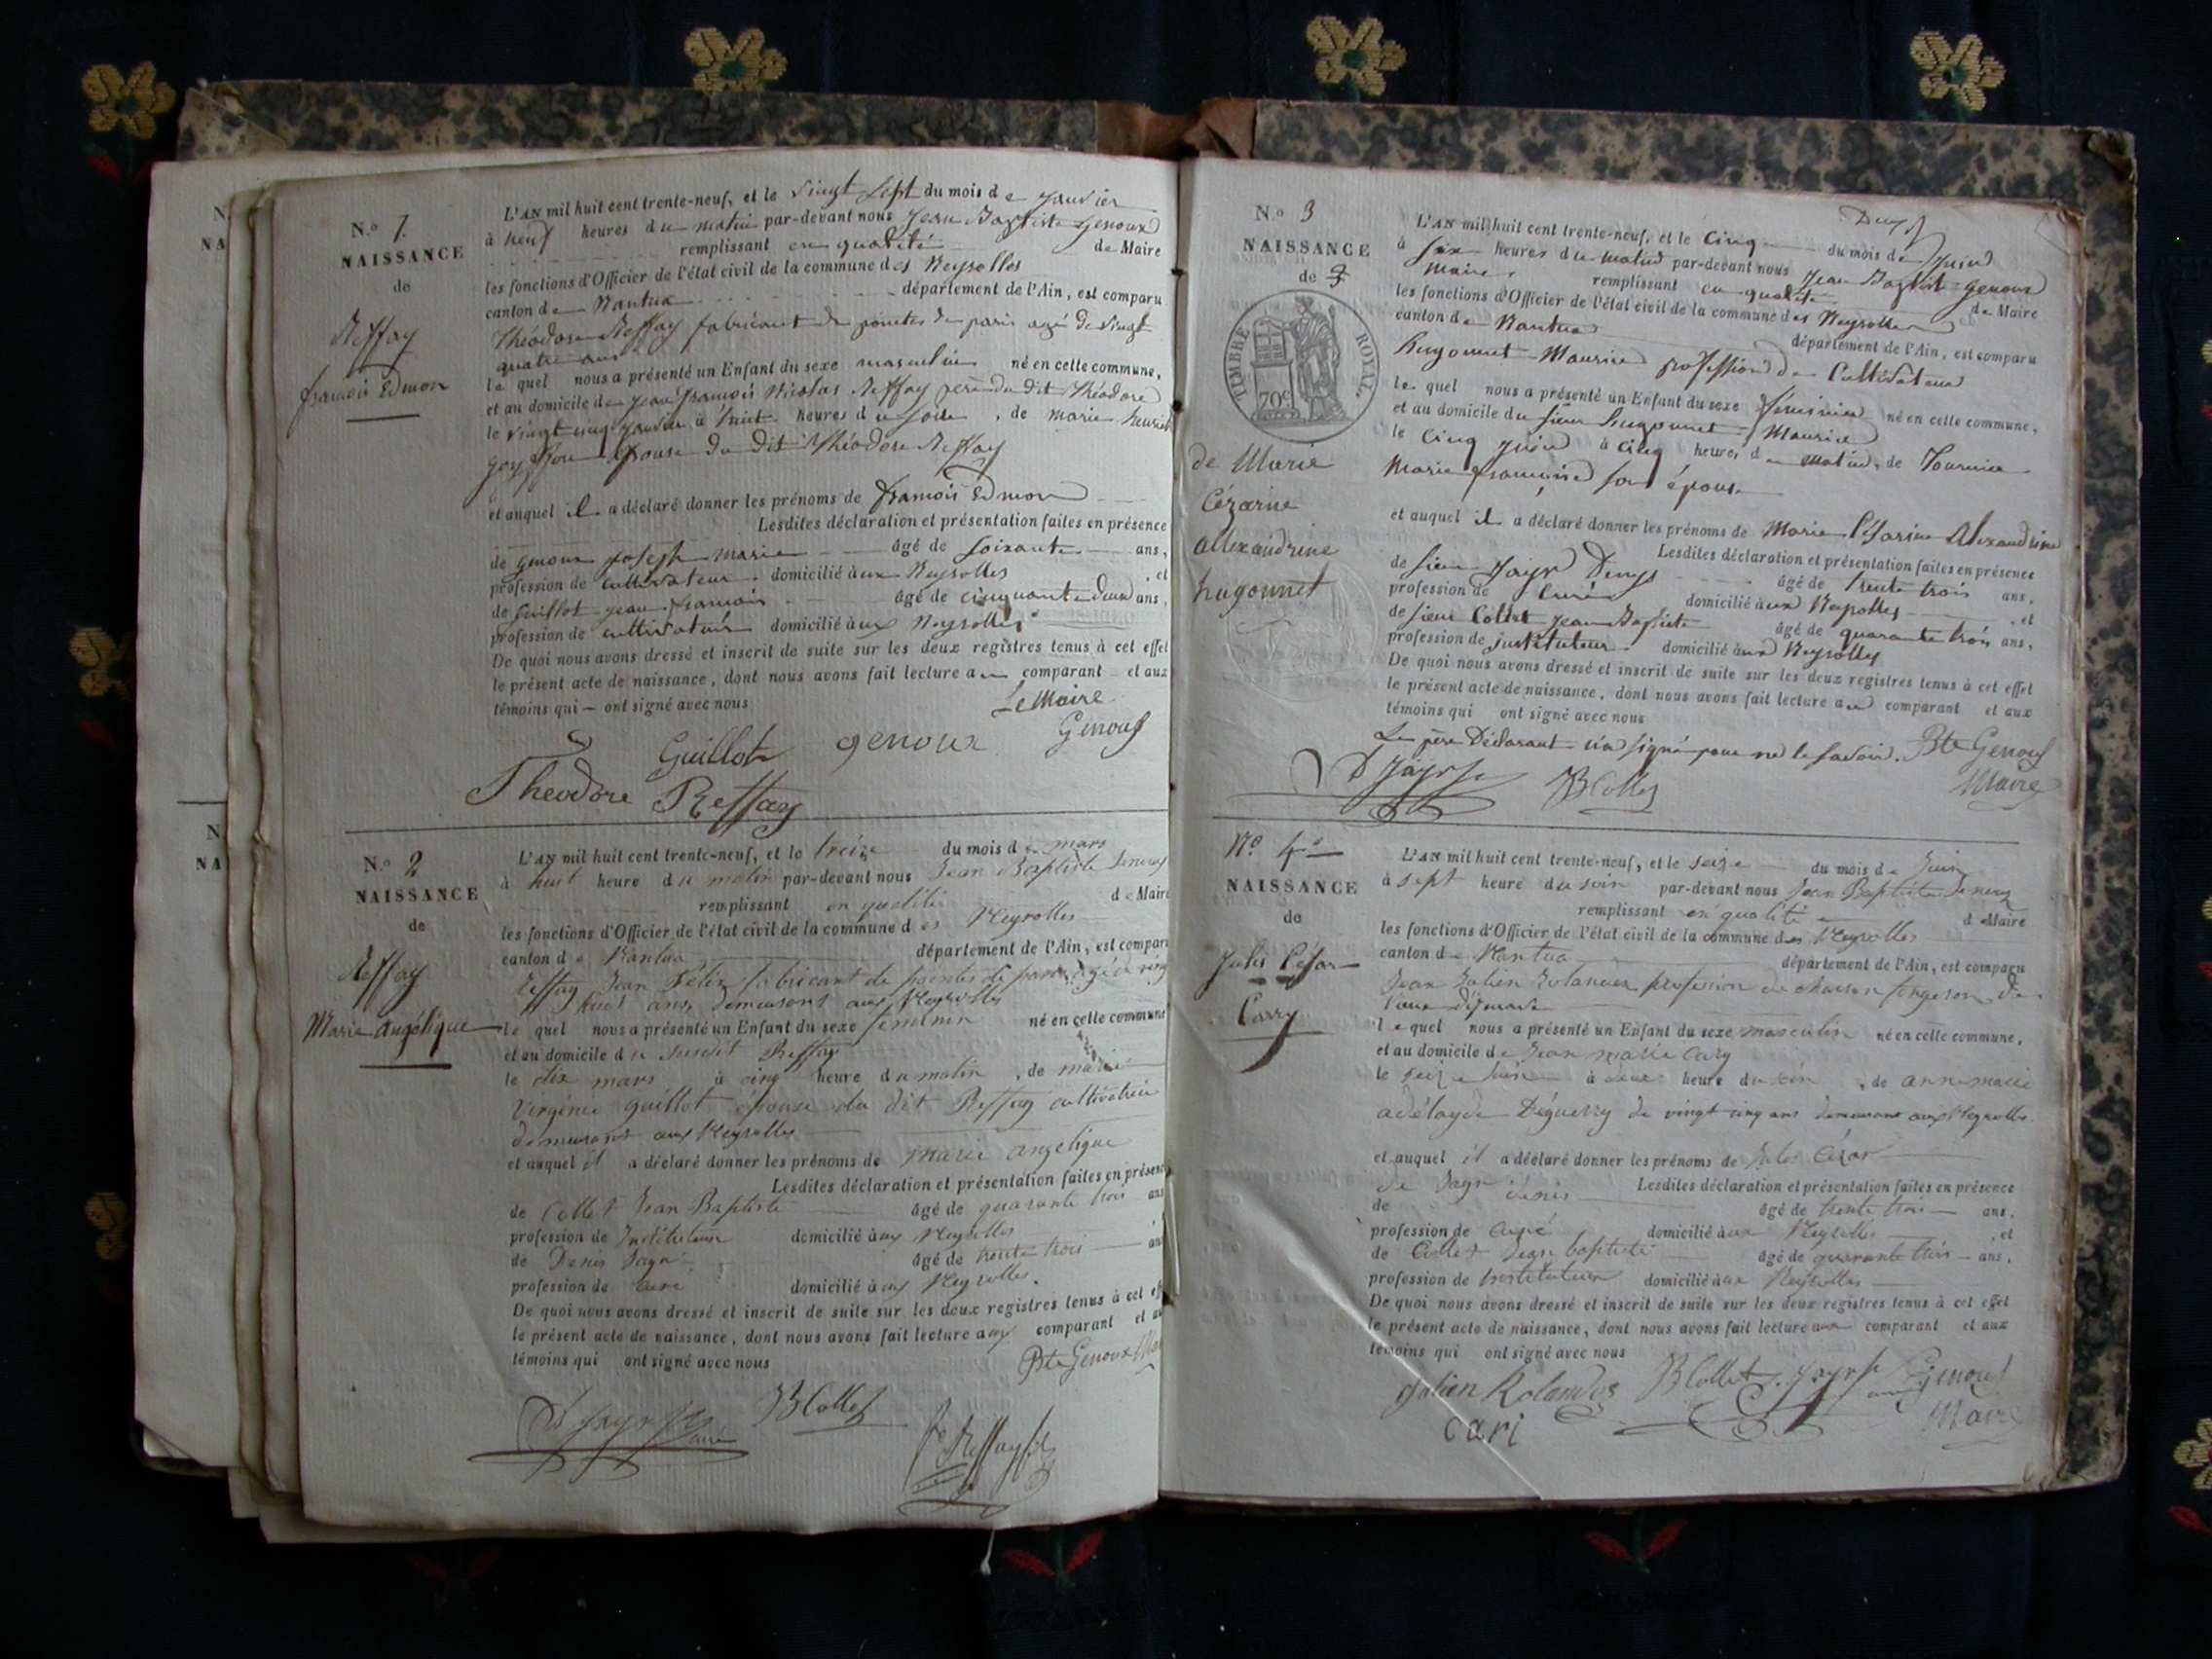 N
NA
N
NA
N.o 1.
NAISSANCE
de
Reffay
françois Edmon
L'AN mil huit cent trente-neuf, et le vingt sept du mois de janvier
à neuf heures du matin par-devant nous Jean Baptiste Genoux
remplissant en qualité de Maire
les fonctions d'Officier de l'état civil de la commune des Neyrolles
canton de Nantua département de l'Ain, est comparu
Théodore Reffay fabricant de pointes de paris agé de vingt
quatre ans
le quel nous a présenté un Enfant du sexe masculin né en cette commune,
et au domicile de jean françois Nicolas Reffay père du dit Théodore
le vingt cinq janvier à huit heures du soir, de marie
épouse du dit Théodore Reffay
et auquel il a déclaré donner les prénoms de françois Edmon
Lesdites déclaration et présentation faites en présence
de genoux joseph marie âgé de soixante ans,
profession de cultivateur domicilié aux Neyrolles, et
de Guillot jean françois âgé de cinquante deux ans,
profession de cultivateur domicilié aux Neyrolles
De quoi nous avons dressé et inscrit de suite sur les deux registres tenus à cet effet
le présent acte de naissance, dont nous avons fait lecture au comparant et aux
témoins qui ont signé avec nous
Le Maire
Guillot genoux Genoux
Theodore Reffay
N.o 2
NAISSANCE
de
Reffay
Marie Angélique
L'AN mil huit cent trente-neuf, et le treize du mois de mars
à huit heure du matin par-devant nous Jean Baptiste Genoux
remplissant en qualité de Maire
les fonctions d'Officier de l'état civil de la commune des Neyrolles
canton de Nantua département de l'Ain, est compar
Reffay Jean Félix fabricant de pointes de paris agé de ving
huit ans, demeurant aux Neyrolles
le quel nous a présenté un Enfant du sexe féminin né en cette commune
et au domicile du susdit Reffay
le dix mars à cinq heure du matin, de marie
Virginie guillot épouse du dit Reffay cultivatrice
demeurant aux Neyrolles
et auquel il a déclaré donner les prénoms de marie angelique
Lesdites déclaration et présentation faites en présenc
de Collet Jean Baptiste âgé de quarante trois ans
profession de Instituteur domicilié aux Neyrolles
de Denis Jayr âgé de trente trois an
profession de curé domicilié aux Neyrolles.
De quoi nous avons dressé et inscrit de suite sur les deux registres tenus à cet eff
le présent acte de naissance, dont nous avons fait lecture aux comparant et au
témoins qui ont signé avec nous
Bte Genoux Mai
D Jayr curé JB Collet
Reffay fils
N.o 3
NAISSANCE
de
TIMBRE ROYAL
70c
de Marie
Cézarine
allexandrine
hugonnet
L'AN mil huit cent trente-neuf, et le cinq du mois de juin
à six heures du matin par-devant nous Jean Baptiste genoux
maire, remplissant en qualité de Maire
les fonctions d'Officier de l'état civil de la commune des Neyrolles
canton de Nantua département de l'Ain, est comparu
hugonnet Maurice profession de Cultivateur
le quel nous a présenté un Enfant du sexe féminin né en cette commune,
et au domicile du sieur hugonnet Maurice
le cinq juin à cinq heures du matin, de Tournier
Marie françoise son épouse
et auquel il a déclaré donner les prénoms de Marie Césarine Alexandrine
Lesdites déclaration et présentation faites en présence
de sieur Jayr Denys âgé de trente trois ans,
profession de curé domicilié aux Neyrolles, et
de sieur Collet jean Baptiste âgé de quarante trois ans,
profession de instituteur domicilié aux Neyrolles
De quoi nous avons dressé et inscrit de suite sur les deux registres tenus à cet effet
le présent acte de naissance, dont nous avons fait lecture au comparant et aux
témoins qui ont signé avec nous
Le père Déclarant n'a signé pour ne le savoir. Bte Genoux
D Jayr JB Collet Maire
No 4
NAISSANCE
de
Jules César
Carry
L'AN mil huit cent trente-neuf, et le seize du mois de Juin
à sept heure du soir par-devant nous Jean Baptiste Genoux
remplissant en qualité de Maire
les fonctions d'Officier de l'état civil de la commune des Neyrolles
canton de Nantua département de l'Ain, est comparu
Jean Julien Rolandos profession de forgeron
le quel nous a présenté un Enfant du sexe masculin né en cette commune,
et au domicile de Jean marie Cary
le seize Juin à heure du soir, de anne marie
adélayde Déguerry de vingt cinq ans demeurant aux Neyrolles.
et auquel il a déclaré donner les prénoms de Jules César
de Jayr denis Lesdites déclaration et présentation faites en présence
de âgé de trente trois ans,
profession de curé domicilié aux Neyrolles, et
de Collet Jean baptiste âgé de quarante trois ans,
profession de Instituteur domicilié aux Neyrolles
De quoi nous avons dressé et inscrit de suite sur les deux registres tenus à cet effet
le présent acte de naissance, dont nous avons fait lecture aux comparant et aux
témoins qui ont signé avec nous
Julien Rolandos JB Collet Jayr Genoux
cari Maire